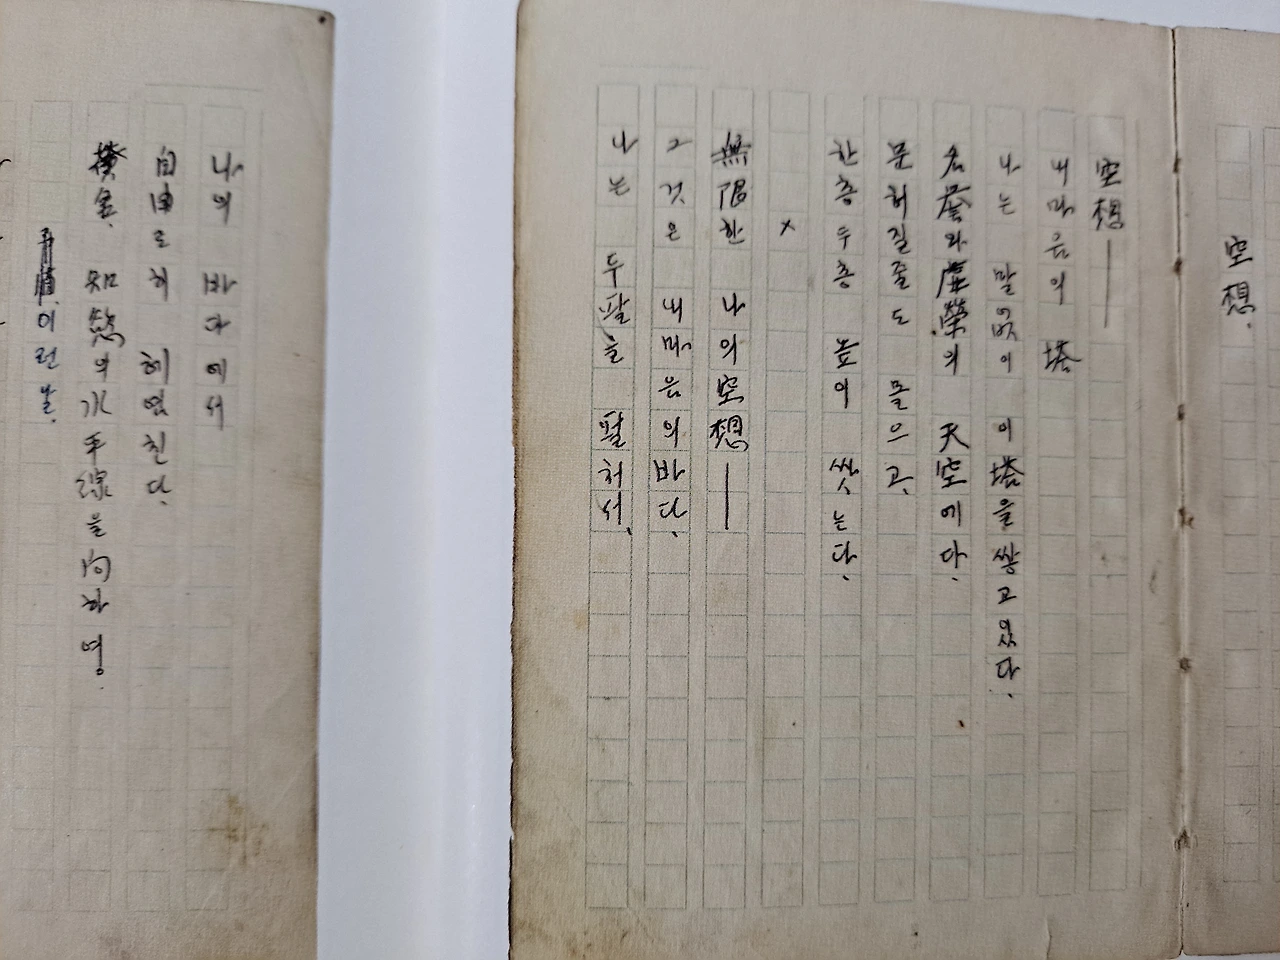 空想.
空想―
내 마음의 塔
나는 말없이 이 塔을 쌓고 있다.
名誉와 虛榮의 天空에다.
문허질줄도 몰으고,
한층두층 높이 쌋는다.
×
無限한 나의 空想―
그것은 내마음의 바다.
나는 두팔을 펼처서,
나의 바다에서
自由로히 헤염친다.
黃金, 知慾의 水平線을 向하여.
이런날.